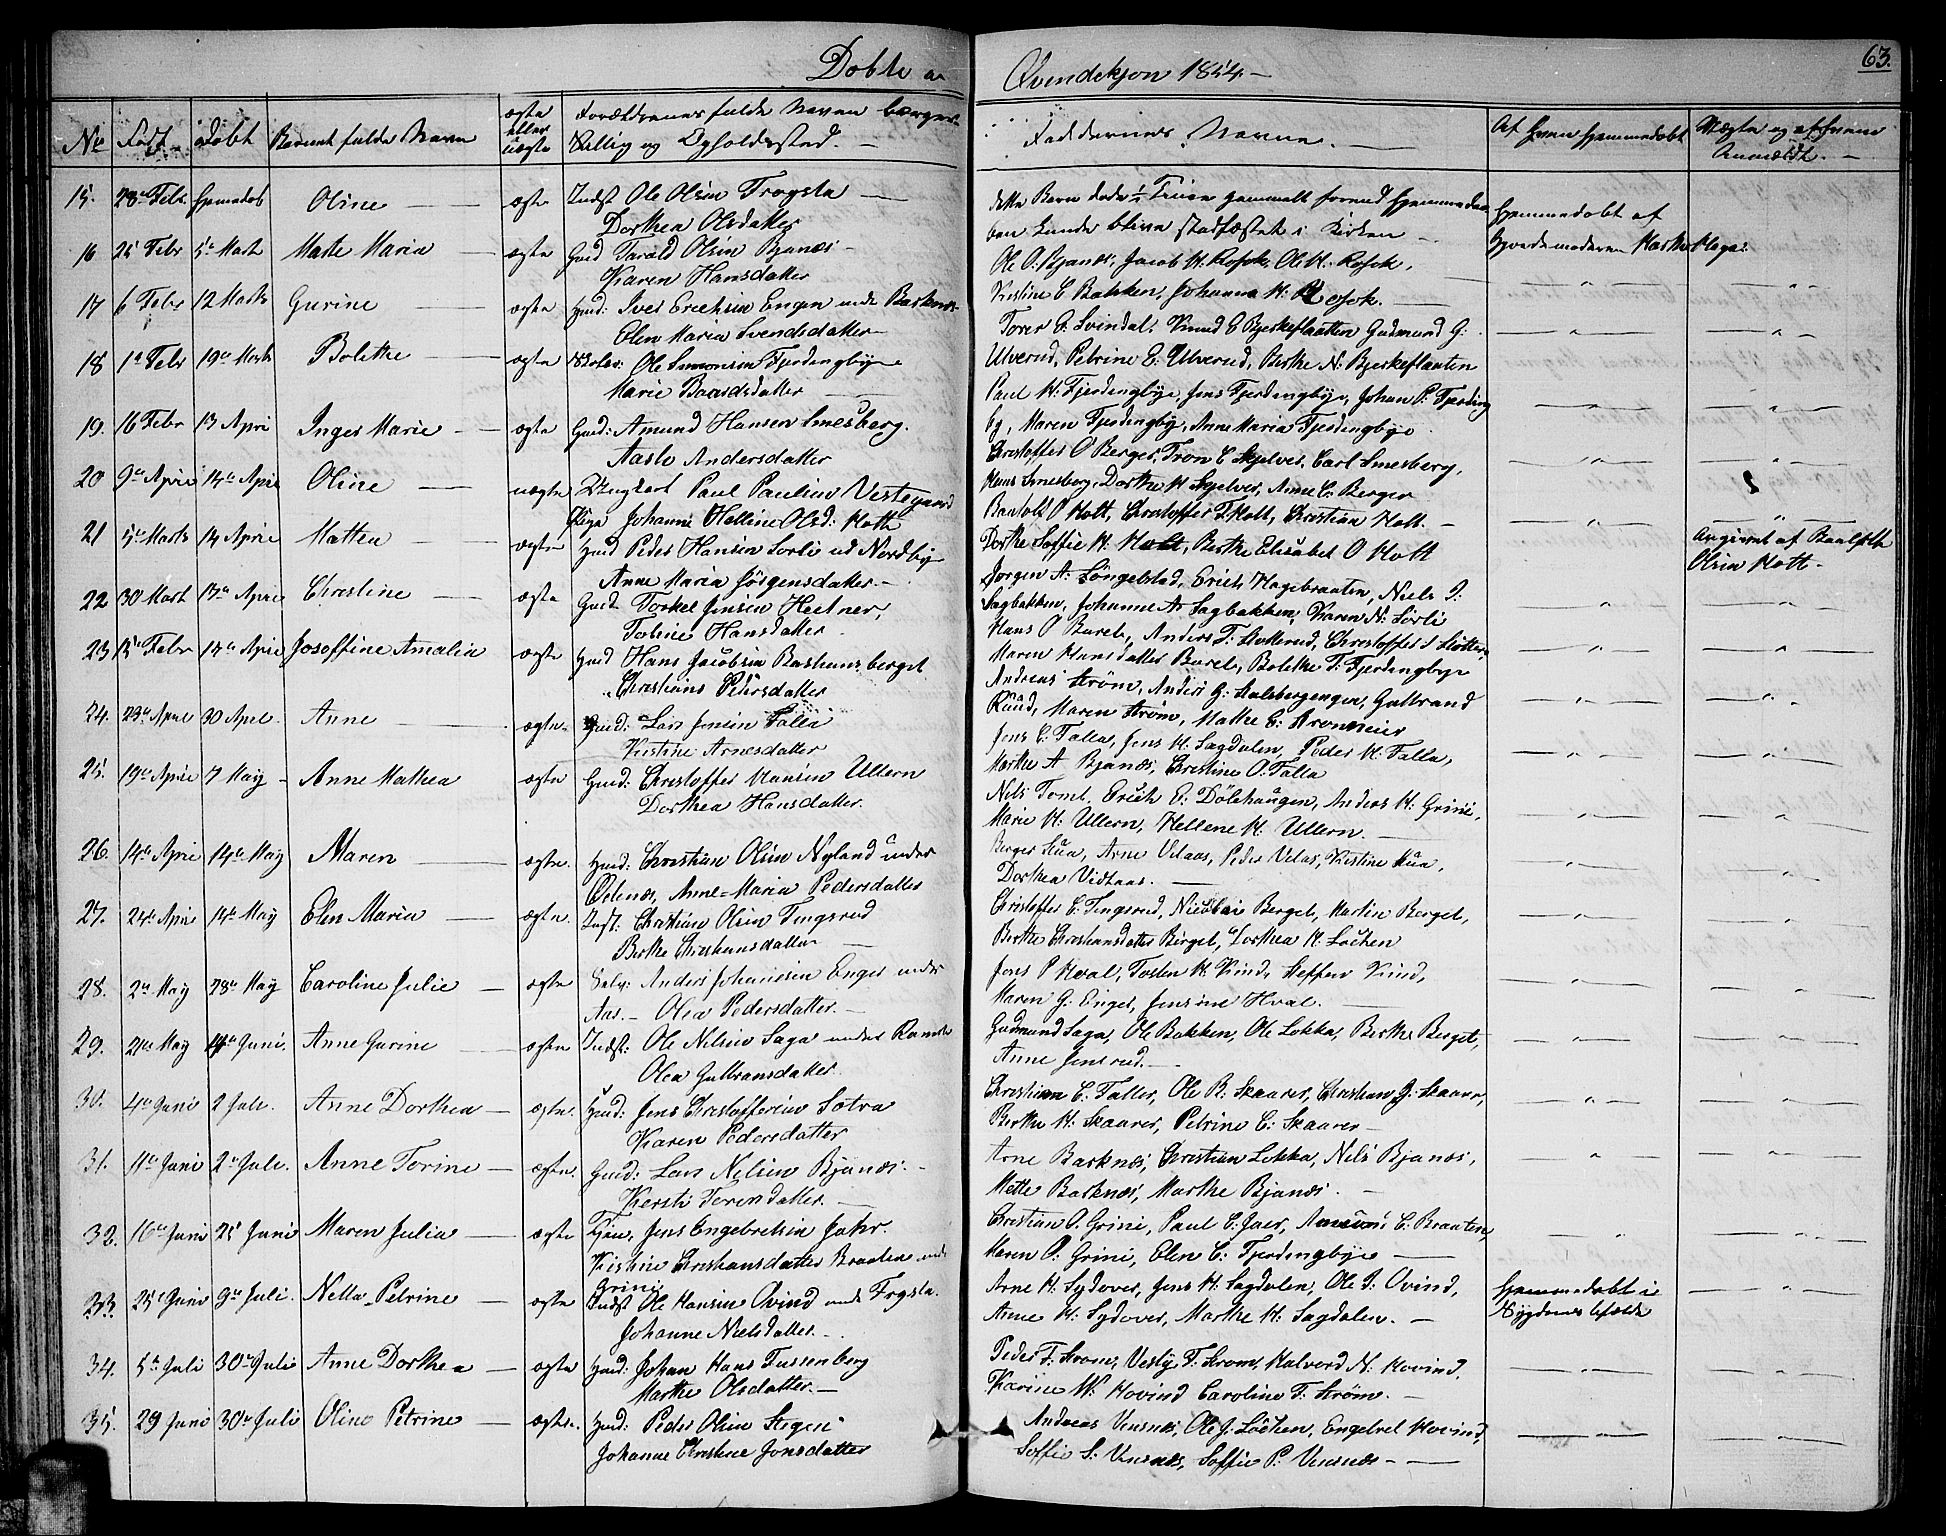 63.
Døbte a
Qvindekjøn 1854.
No Født døbt Barnets fulde Navn ægte eller uægte Forældrenes fulde Navne
Stilling og Opholdssted.
Faddernes Navne. Af hvem hjemmedøbt Uægte og af hvem Anmeldt.
15. 28de Febr. hjemmedøb Oline ægte Indst Ole Olsen Trogsta
Dorthea Olsdatter
dette Barn døde Truen gammelt forend hjemmedaa
ben kunde blive stadfæstet i Kirken
Hjemmedøbt af
Gjordemoderen Marthe Haga:
16 25 Febr 5te Marts Marte Maria ægte Gaard Tarald Olsen Bjanæs
Karen Hansdatter
Ole O. Bjanæs, Jacob H. Kosok, Ole H. Kosok,
Kirstine C Bakken, Johanna H: Kosok.
17 6 Febr 12 Marts Gurine ægte Huusd: Iver Erichsen Engen unde Barknæs
Elen Maria Svendsdatter
Torer E. Svindal, Knud E Bjerkeflaatten Gudmund G:
Ulverud, Petrine E: Ulverud, Berthe N: Bjerkeflaaten
18 1te Febr 19de Marts Bolette ægte Ole Simonsen Fjerdingbye
Marie Baardsdatter
Paul H. Fjerdingbye, Jens Fjerdingbye, Johan P: Fjerding
by, Maren Fjerdingby, Anne Maria Fjerdingbye
19. 16 Febr 13 Apri Inger Marie ægte Gaard: Amund Hansen Smesberg.
Aaste Andersdatter
Christoffer O Berger, Tron C Skjelver, Carl Smesberg,
Hans Smesberg, Dorthe H Skjelver, Anne C. Berger
20 9de Aprie 14de Apri Oline uægte Ungkarl Paul Paulsen Vestegaard
Pige Johanne Helline Olsd: Holt
Baardolt O Holt, Christoffer T. Holt, Christian Holt.
Dorthe Soffie H: Holt, Berthe Elisabet O Holt
Angivet af Baalolt
Olsen Holt
21 5te Marts 14 Aprie Mattea ægte Huusd Peder Hansen Sorli ud Nordby
Anne Maria Jörgensdatter
Jorgen A: Løngelstad, Erich Hagebraaten, Niels I:
Sagbakken, Johanne A: Sagbakken, Karen N. Sorli
22 30 Mart 17de Aprie Christine ægte Gaard Torkel Jensen Heitner,
Tobine Hansdatter
Hans O Burel, Anders T. Slotterud, Christoffer S Slotter
Maren Hansdatter Burel, Bolethe T: Fjerdingbye
23 15de Febr 17de Aprie Josoffine Amalia ægte Huusd Hans Jacobsen Bashusberget
Christians Pedersdatter
Andreas Strøm, Anders G: Aalsbergengen, Gulbrand
Ruud, Maren Strøm, Mathe E: Kronneier
24. 23de April 30 Apri. Anne ægte Huusd: Lars Jensen Falla
Kirstine Arnesdatter
Jens C: Falla, Jens H. Sagdalen, Peder H. Falla,
Marthe A Bjanæs, Christine O. Falla
25. 19de Aprie 7 May Anne Mathea ægte Gaard: Christoffer Hansen Ullern
Dorthea Hansdatter.
Nils Tomt, Erich E: Dölehaugen, Anders H: Grini,
Marie H: Ullern, Hellene H. Ullern.
26. 14de Aprie 14de May Maren ægte. Huusd: Christian Olsen Nyland under
Odenæs, Anne-Maria Pedersdatter
Berger Hua, Arne Velaas, Peder Velas, Kirstine Hua,
Dorthea Vidtaas.
27. 24de Aprie 14de May Elen Maria ægte. Indst: Christian Olsen Tingsrud
Berthe Christiansdatter
Christoffer C. Tingsrud, Nicolai Berget, Martin Berget,
Berthe Christiansdatter Berget, Dorthea H. Løchen
28. 2de May 28de May Caroline Julie ægte Selv: Anders Johansen Enger under
Aas. Olea Pedersdatter.
Jens P Hval, Tosten H. Kind, Steffen Kind,
Maren G. Enget, Jensine Hval.
29. 21de May 4de Juni. Anne Gurine ægte Indst: Ole Nilsen Saga under Ramst
Olea Gulbransdatter.
Gudmund Saga, Ole Bakken, Ole Løkka, Berthe Berget,
Anne Jensrud.
30. 4de Juni 2 Juli. Anne Dorthea ægte. Huusd: Jens Christoffersen Sotra
Karen Pedersdatter
Christian C: Faller, Ole R. Skaarer, Christian J: Skaarer,
Berthe H. Skaarer, Petrine C: Skaarer
31. 11de Juni 2de Juli. Anne Torine ægte. Gaard: Lars Nilsen Bjanæs.
Kersti Torersdatter.
Arne Barknæs, Christian Lekka, Nils Bjanæs,
Mette Barknæs, Marthe Bjanæs.
32. 16de Juni 25 Juni Maren Julia ægte Tjen, Jens Engebretsen Jahr.
Kirstine Christiansdatter Braaten unde
Grini
Christian O. Grini, Paul C: Jaer, C: Braaten,
Maren O: Grini, Elen C: Fjerdingbye
33. 25de Juni 9de Juli. Nella Petrine ægte Indst Ole Hansen Ovind unde Frysta.
Johanne Nielsdatter.
Arne H. Sydover, Jens H: Sagdalen, Ole I: Ovind,
Anne H: Sydover, Marthe H. Sagdalen.
Hjemmedøbt i
34. 5te Juli 30de Juli Anne Dorthea ægte Huusd: Johan Hans Tussenberg
Marthe Olsdatter.
Peder T: Strøm, Vesly T. Strøm, Halvord N: Hovind,
Karine N: Hovind Caroline T: Strøm.
35. 29 Juni 30de Juli Oline Petrine ægte. Huusd: Peder Olsen Stegen
Johanne Christine Jonsdatter
Andreas Vensnæs, Ole J. Löchen, Engebret Hovind,
Soffie S: Vensnæs, Soffie P. Vensnæs